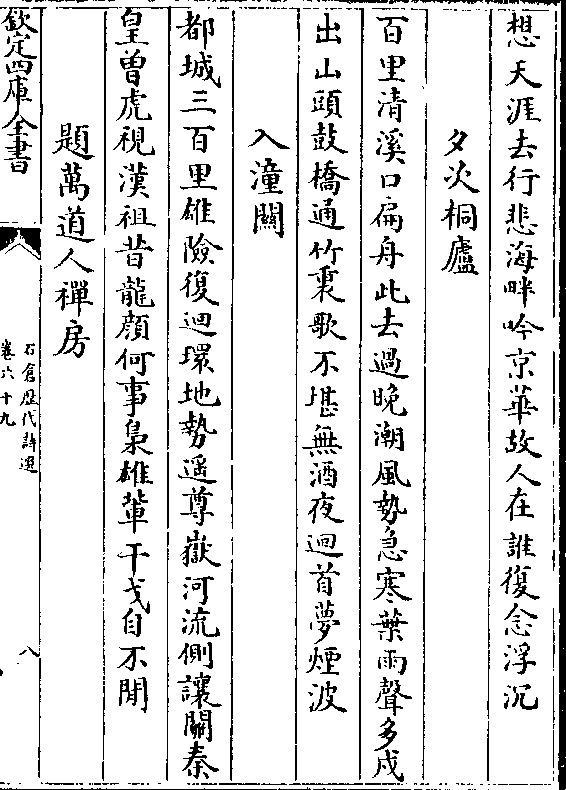 想天涯去行悲海畔吟京華故人在誰復念浮沉
夕次桐廬
百里清溪口扁舟此去過晚潮風勢急寒葉雨聲多戍
出山頭鼓橋通竹裏歌不堪無酒夜迴首夢煙波
入潼關
都城三百里雄險復迴環地勢遥尊嶽河流側讓關秦
皇曽虎視漢祖昔龍顔何事梟雄輩干戈自不閒
題萬道人禪房
欽定四庫全書
石倉歴代詩選
卷六十九
八